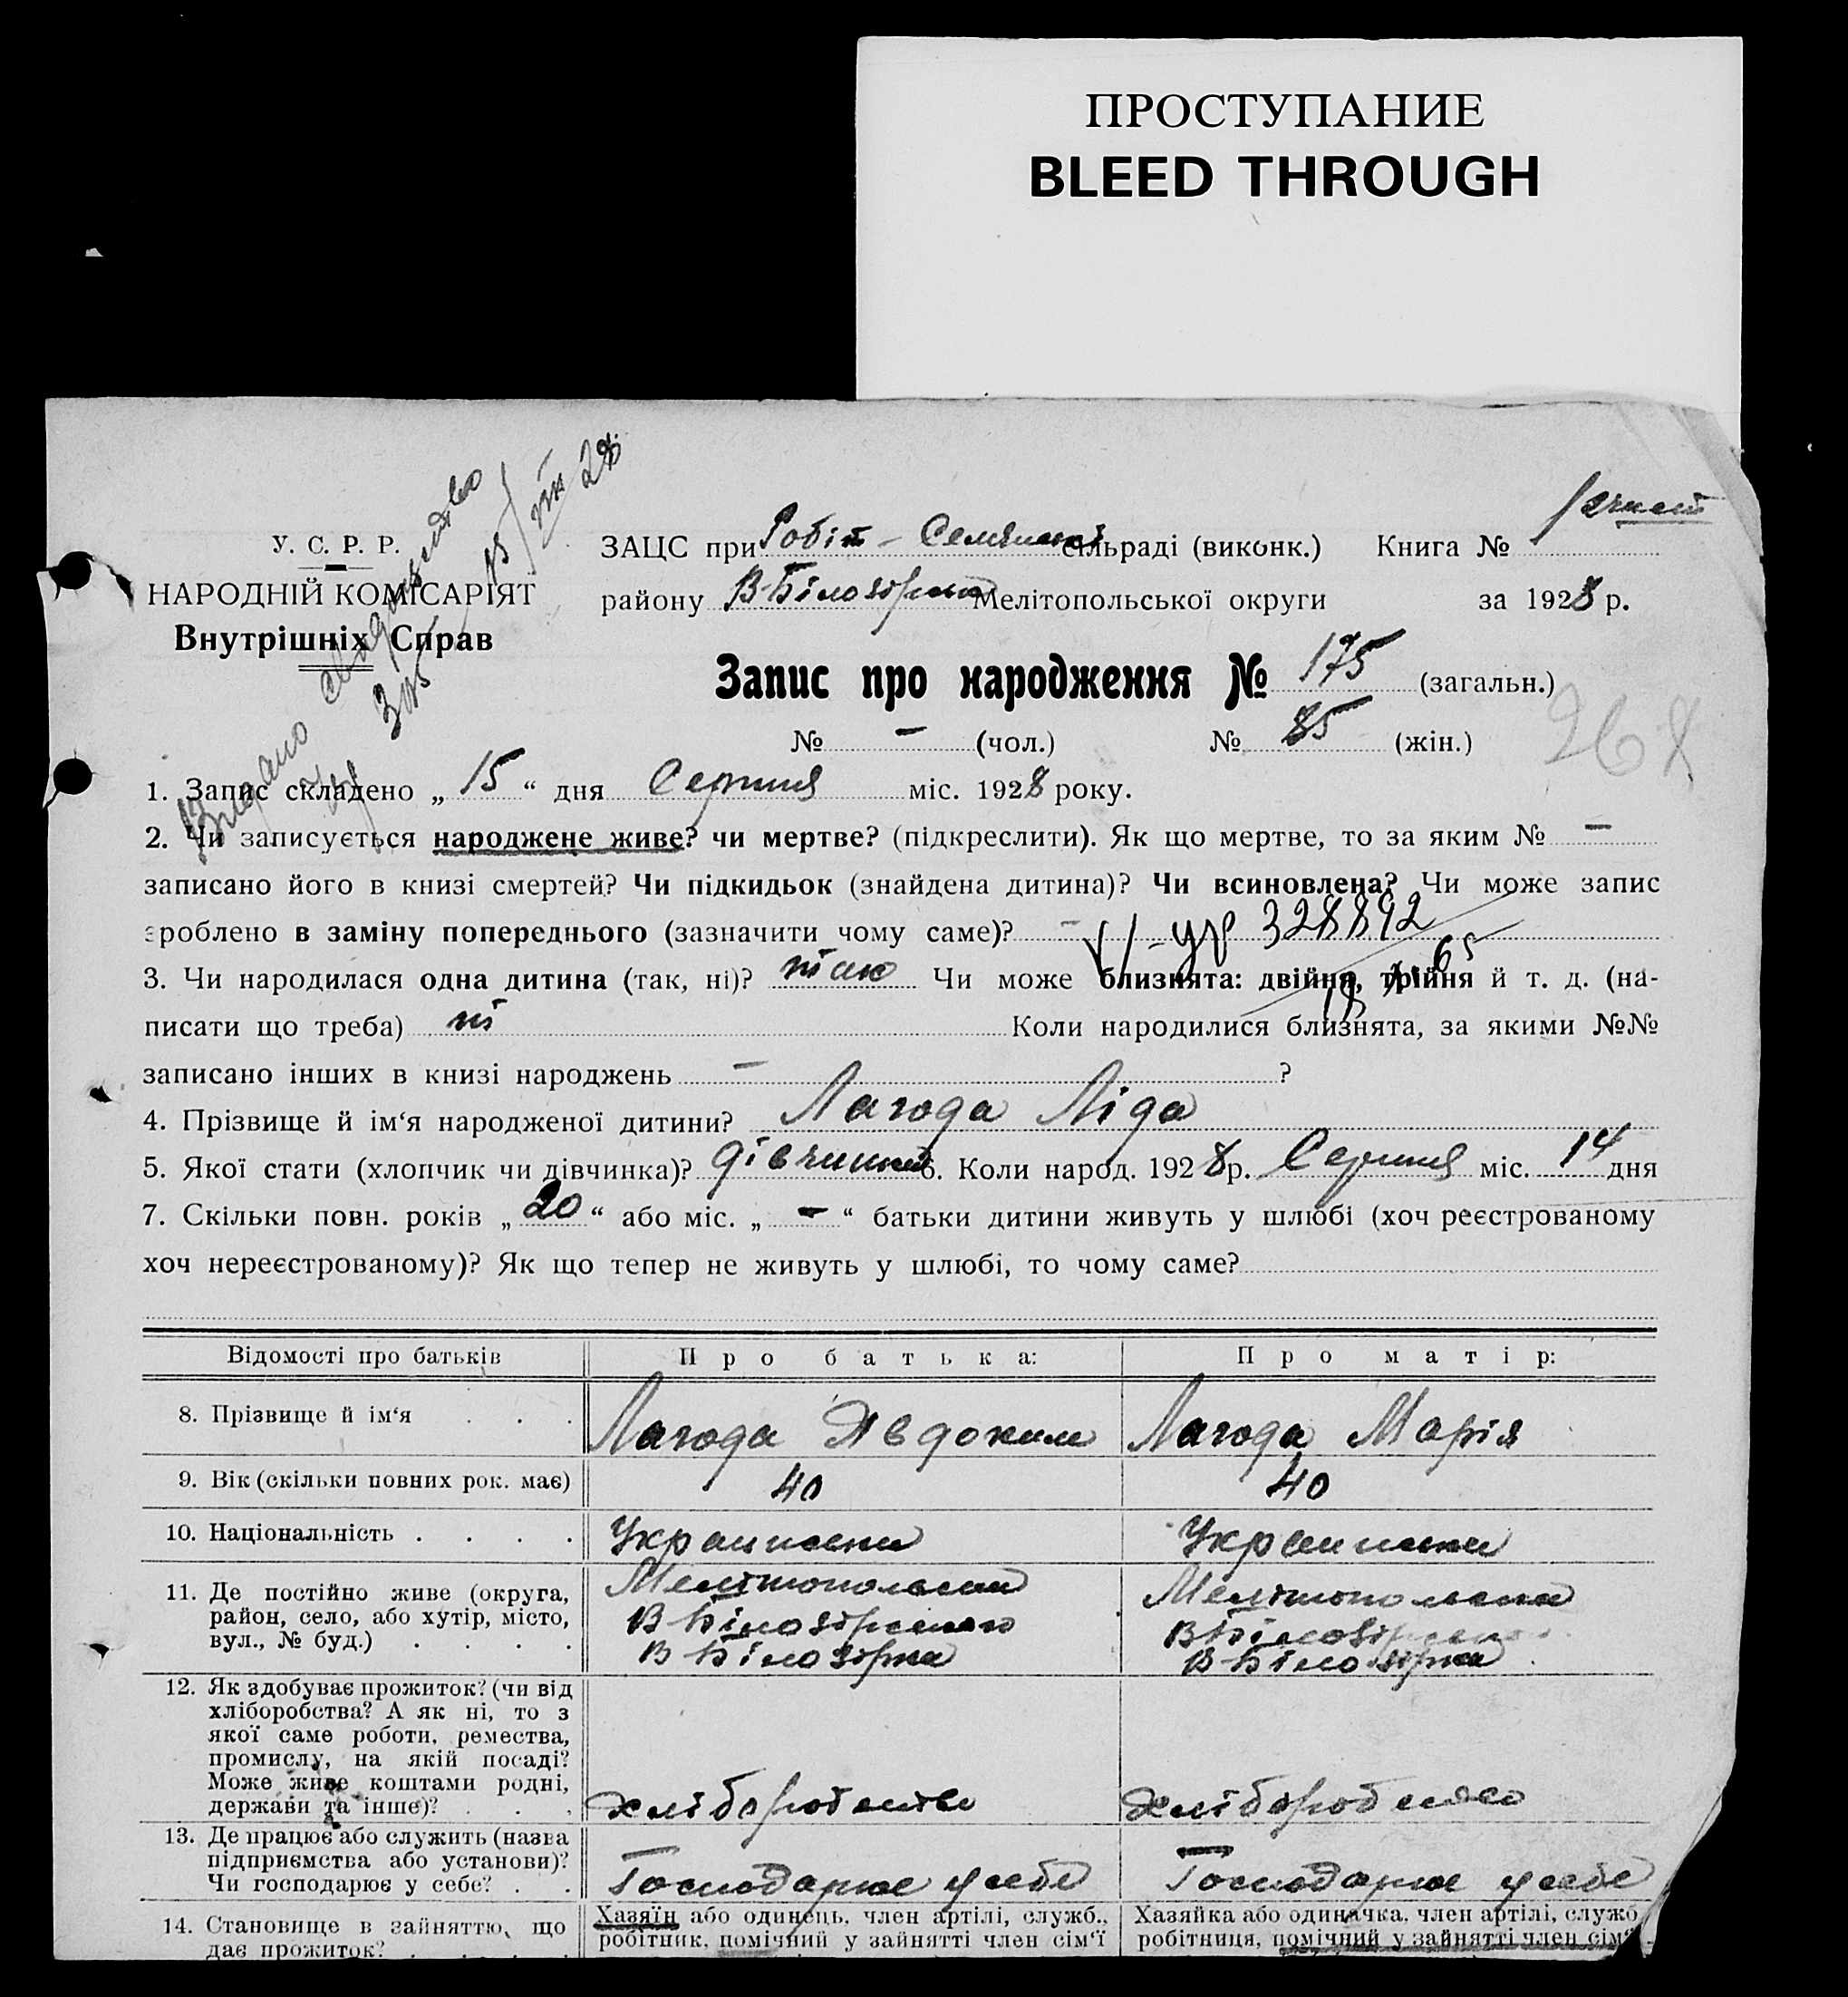 ПРОСТУПАНИЕ
BLEED THROUGH
У. С. Р. Р.
НАРОДНІЙ КОМІСАРІЯТ
Внутрішніх Справ
Видано свідоцтво
ЗАЦС при Робіт - Семянські сільраді (виконк.) Книга №
району В-Білозірськ Мелітопольської округи за 1928 р.
Запис про народження № 175 (загальн.)
№ – (чол.) № 85 (жін.)
268
1. Запис складено „ 15 “ дня Серпня міс. 1928 року.
2. Чи записується народжене живе? чи мертве? (підкреслити). Як що мертве, то за яким № –
записано його в книзі смертей? Чи підкидьок (знайдена дитина)? Чи всиновлена? Чи може запис
зроблено в заміну попереднього (зазначити чому саме)? – V/-УР 328892
3. Чи народилася одна дитина (так, ні)? так Чи може близнята: двійня, трійня й т. д. (на-
писати що треба) ні Коли народилися близнята, за якими №№
записано інших в книзі народжень – ?
4. Прізвище й ім‘я народженої дитини? Лагода Ліда
5. Якої стати (хлопчик чи дівчинка)? дівчинка 6. Коли народ. 1928 р. Серпня міс. 14 дня
7. Скільки повн. років „ 20 “ або міс. „ – “ батьки дитини живуть у шлюбі (хоч реєстрованому
хоч нереєстрованому)? Як що тепер не живуть у шлюбі, то чому саме?
Відомості про батьків Про батька: Про матір:
8. Прізвище й ім‘я . . . Лагода Явдоким Лагода Марія
9. Вік (скільки повних рок. має) 40 40
10. Національність . . . . Украинець Украинка
11. Де постійно живе (округа, Мелітопольська Мелітопольська
район, село, або хутір, місто, В Білозірського В Білозірського
вул., № буд.) . . . . В Білозірка В Білозірка
12. Як здобуває прожиток? (чи від
хліборобства? А як ні, то з
якої саме роботи, ремества,
промислу, на якій посаді?
Може живе коштами родні,
держави та інше)? . . . хліборобство хліборобство
13. Де працює або служить (назва
підприємства або установи)?
Чи господарює у себе? . . Господарює у себе Господарює у себе
14. Становище в зайняттю, що Хазяїн або одинець, член артілі, служб., Хазяйка або одиначка, член артілі, служб
дає прожиток? . . . . робітник, помічний у зайнятті член сім‘ї робітниця, помічний у зайнятті член сім‘ї